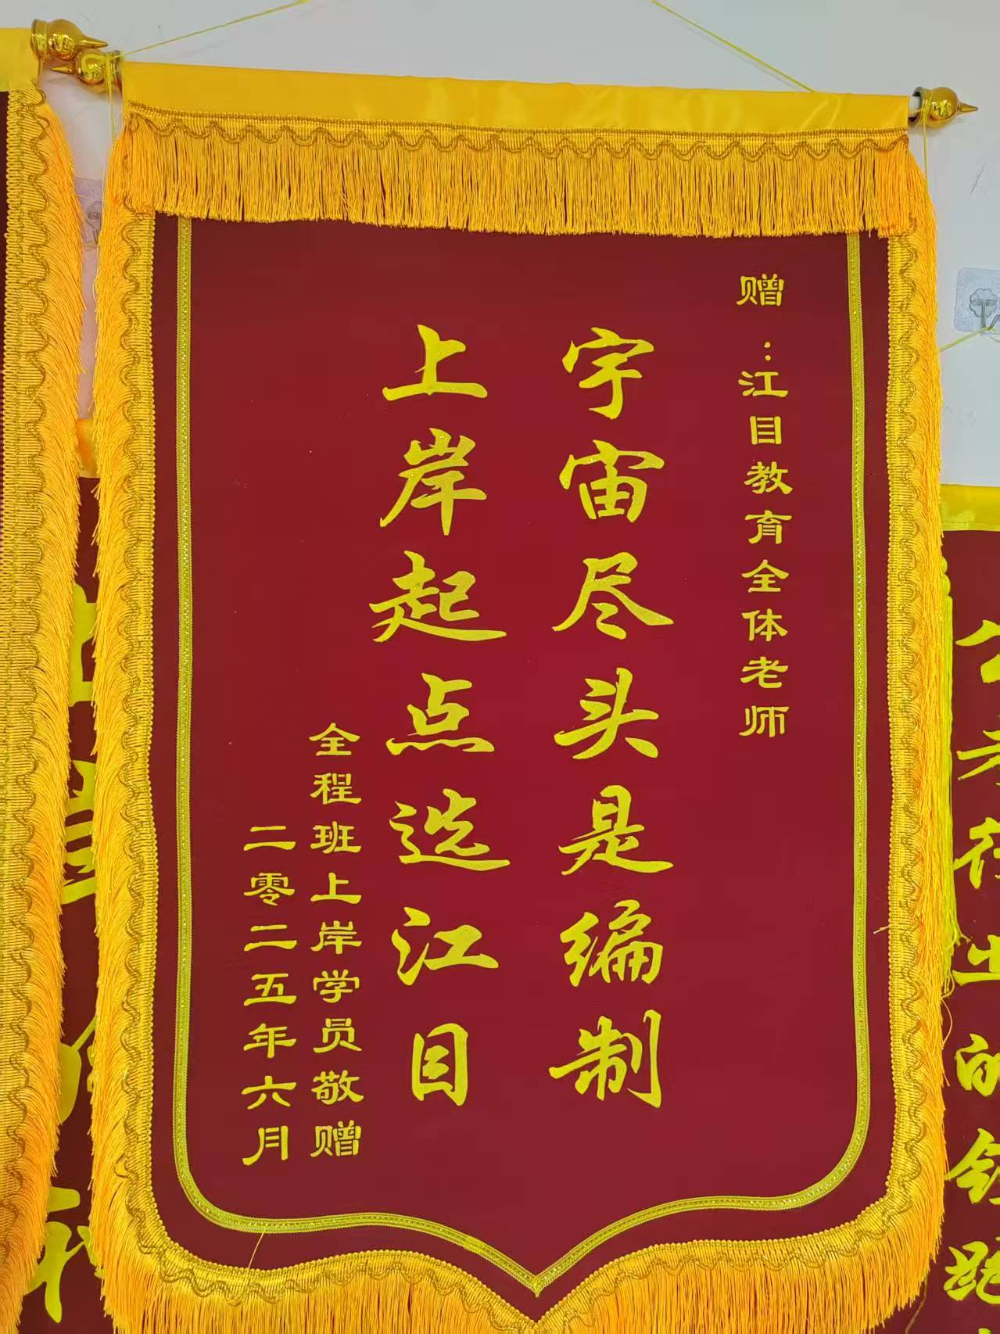 赠：江目教育全体老师
宇宙尽头是编制
上岸起点选江目
全程班上岸学员敬赠
二零二五年六月